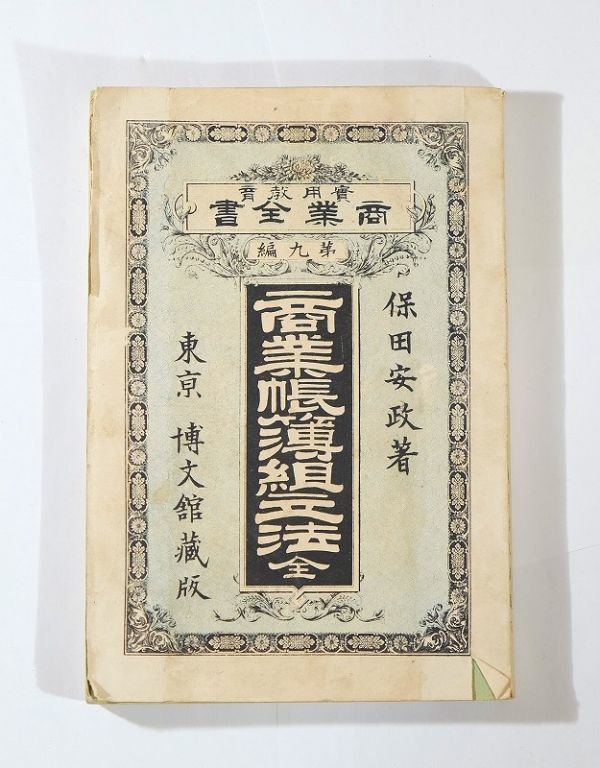 實用教育
商業全書
第九編
保田安政著
商業帳簿組立法全
東京 博文館藏版